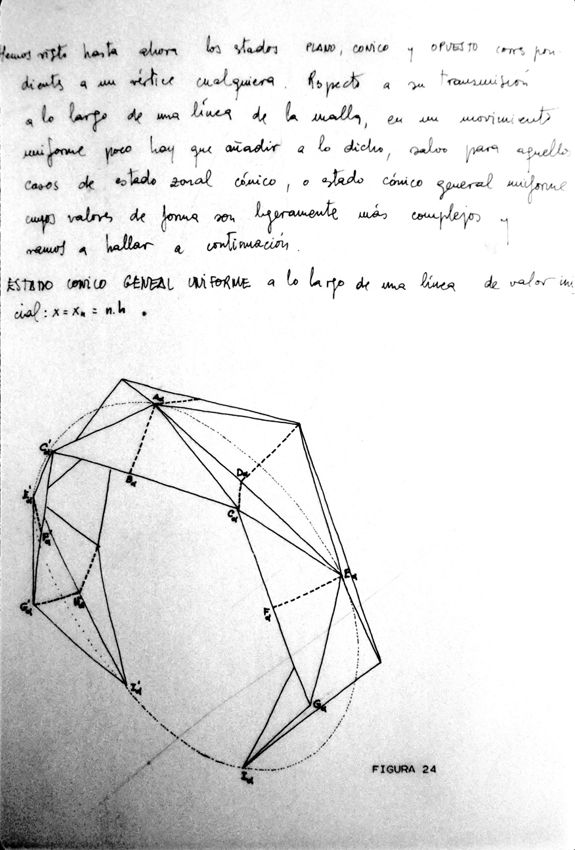 Hemos visto hasta ahora los stados PLANO, CONICO y OPUESTO corres pon-
dients a un vértice cualquiera. Rspecto a su transmisión
a lo largo de una línea de la malla, en un movimiento
uniforme poco hay que añadir a lo dicho, salvo para aquellos
casos de estado zonal cónico, o estado cónico general uniforme
cuyos valores de forma son ligeramente más complejos y
vamos a hallar a continuación.
ESTADO CONICO GENEAL UNIFORME a lo largo de una línea de valor ini
cial: x = xn = n.h .
Aα
Cα'
Bα
Dα
Cα
Eα'
Fα'
Eα
Gα'
Hα'
Fα
Iα'
Gα
Iα
FIGURA 24